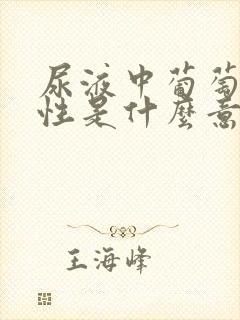 尿液中葡萄
性是什麼意
王海峰